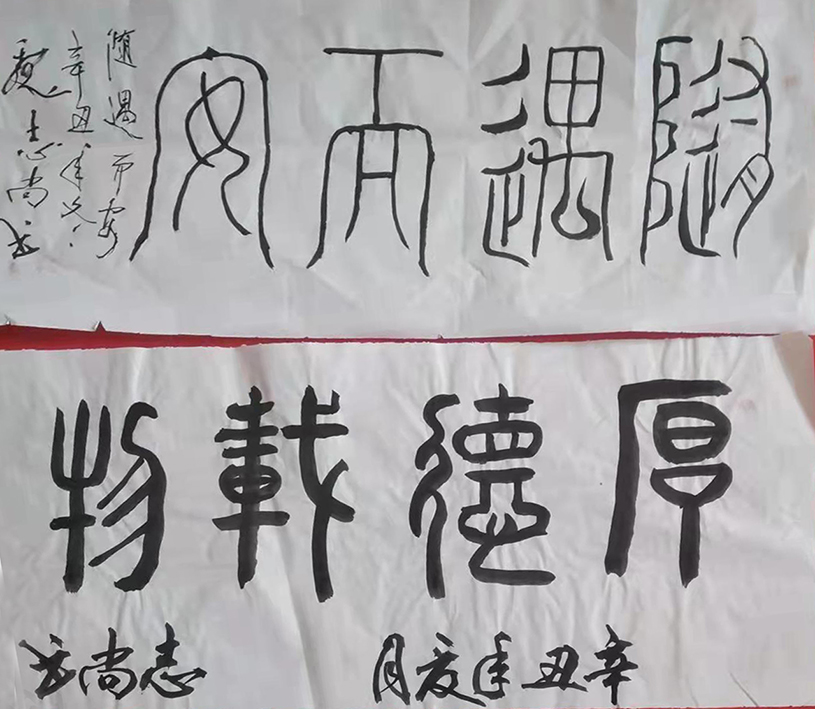 隨遇而安
随遇而安
辛丑年冬
志尚
厚德載物
辛丑年夏月
志尚